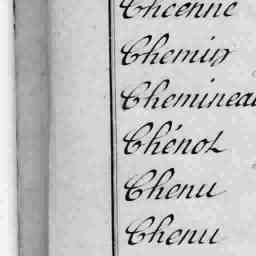 Chcenne
Chemin
Cheminea
Chénot
Chenu
Chenu